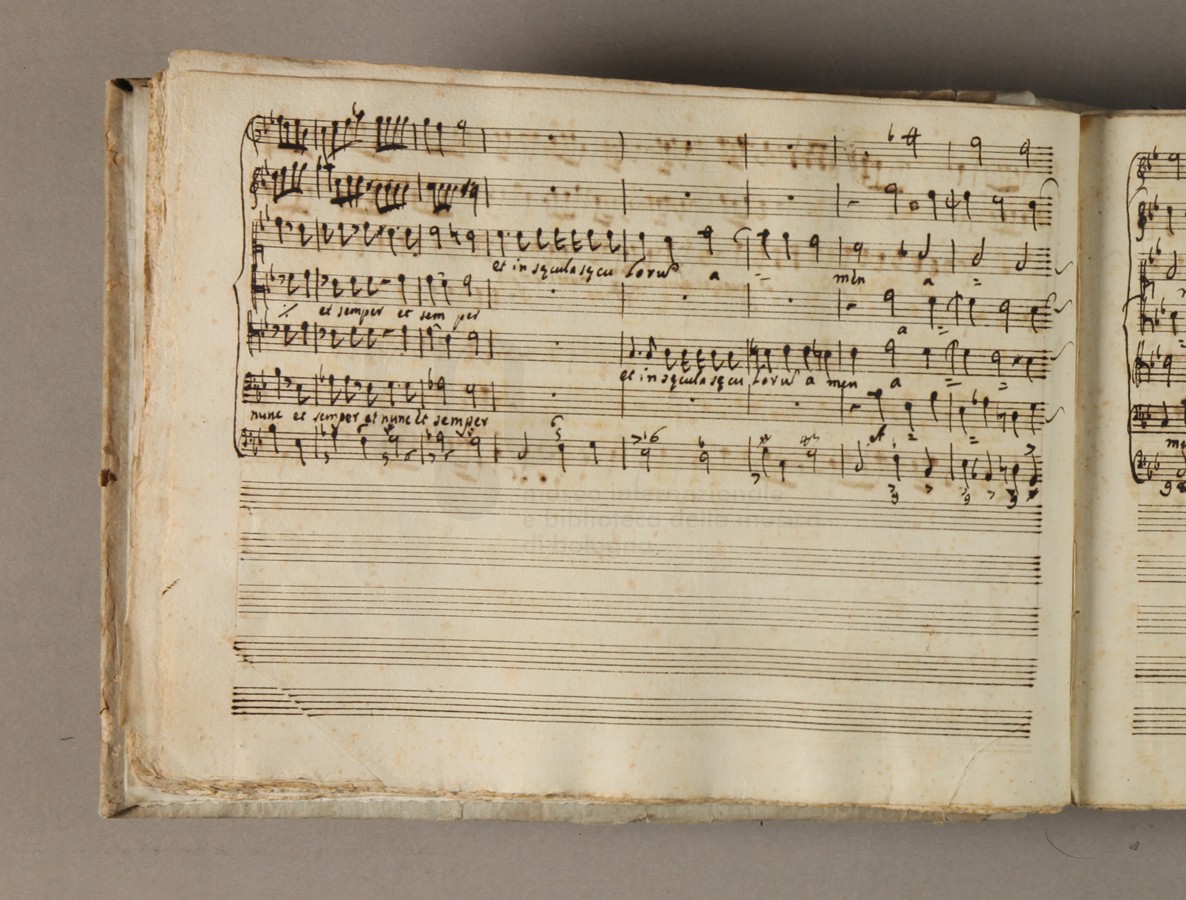 et in sęcula sęcu lorum a = men a =
et semper et sem per
a =
et in sęcula sęcu lorum a men a = =
nunc et semper et nunc et semper
A = =
museo internazionale
e biblioteca della musica
di bologna